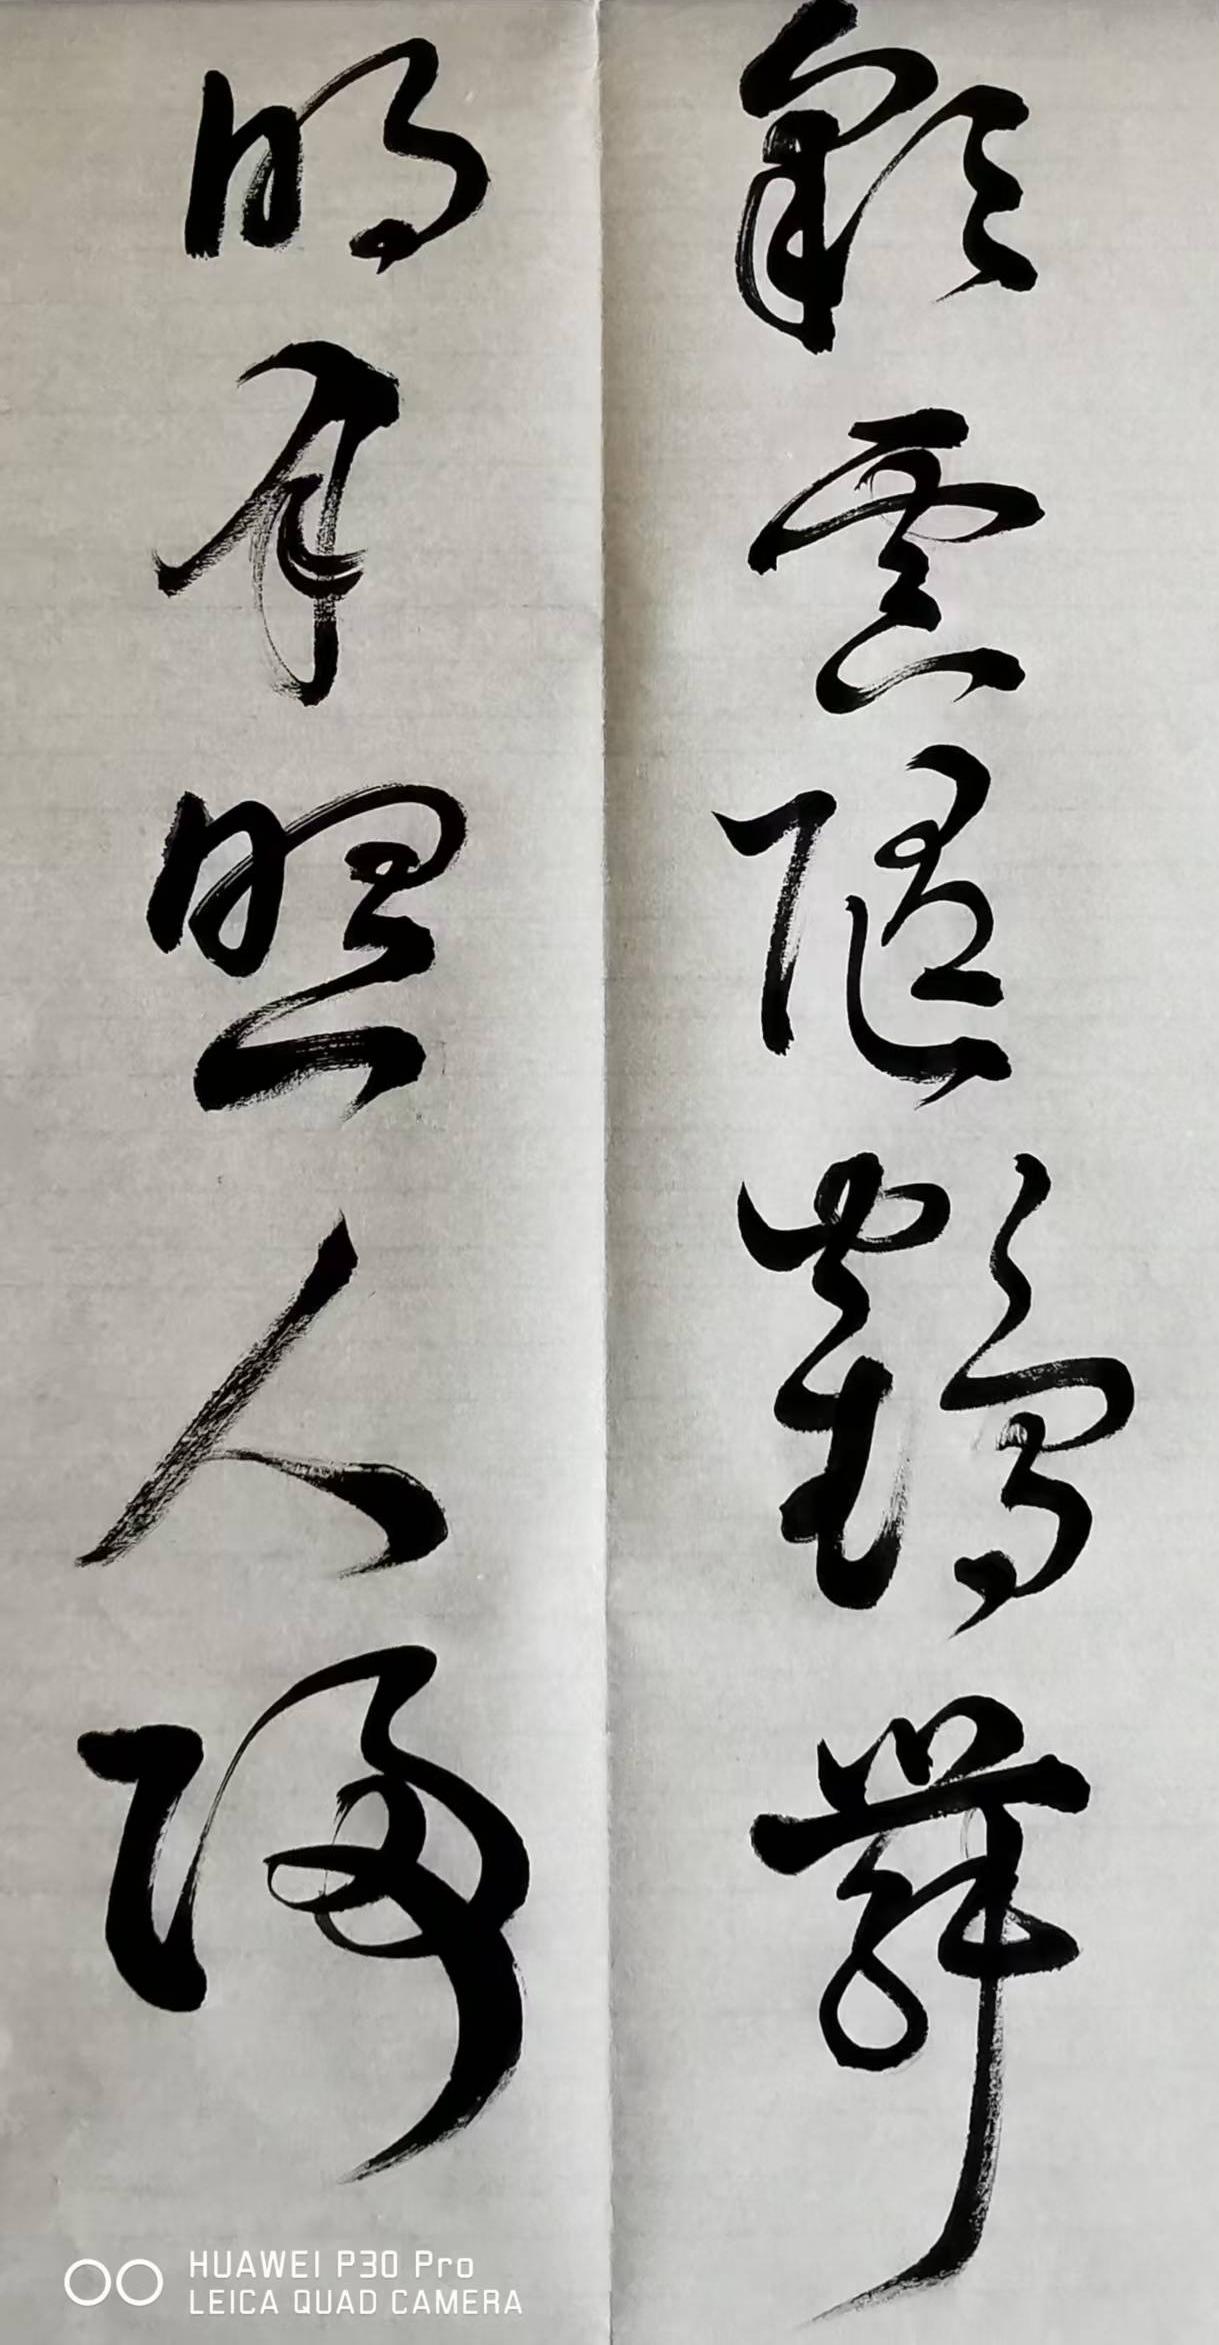 彩雲隨鶴舞
明月照人歸
HUAWEI P30 Pro
LEICA QUAD CAMERA